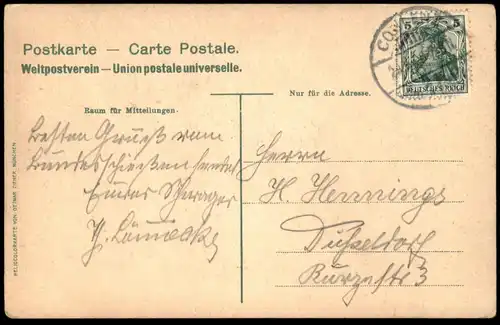 Postkarte — Carte Postale.
Weltpostverein — Union postale universelle.
5 5
DEUTSCHES REICH
Nur für die Adresse.
Raum für Mitteilungen.
Besten Gruß vom
Bundesschießen sendet
Euer Schwager
H.
Herrn
H. Hennings
Düsseldorf
Kurzestr 3
HELIOCOLORKARTE VON OTTMAR ZIEHER, MÜNCHEN